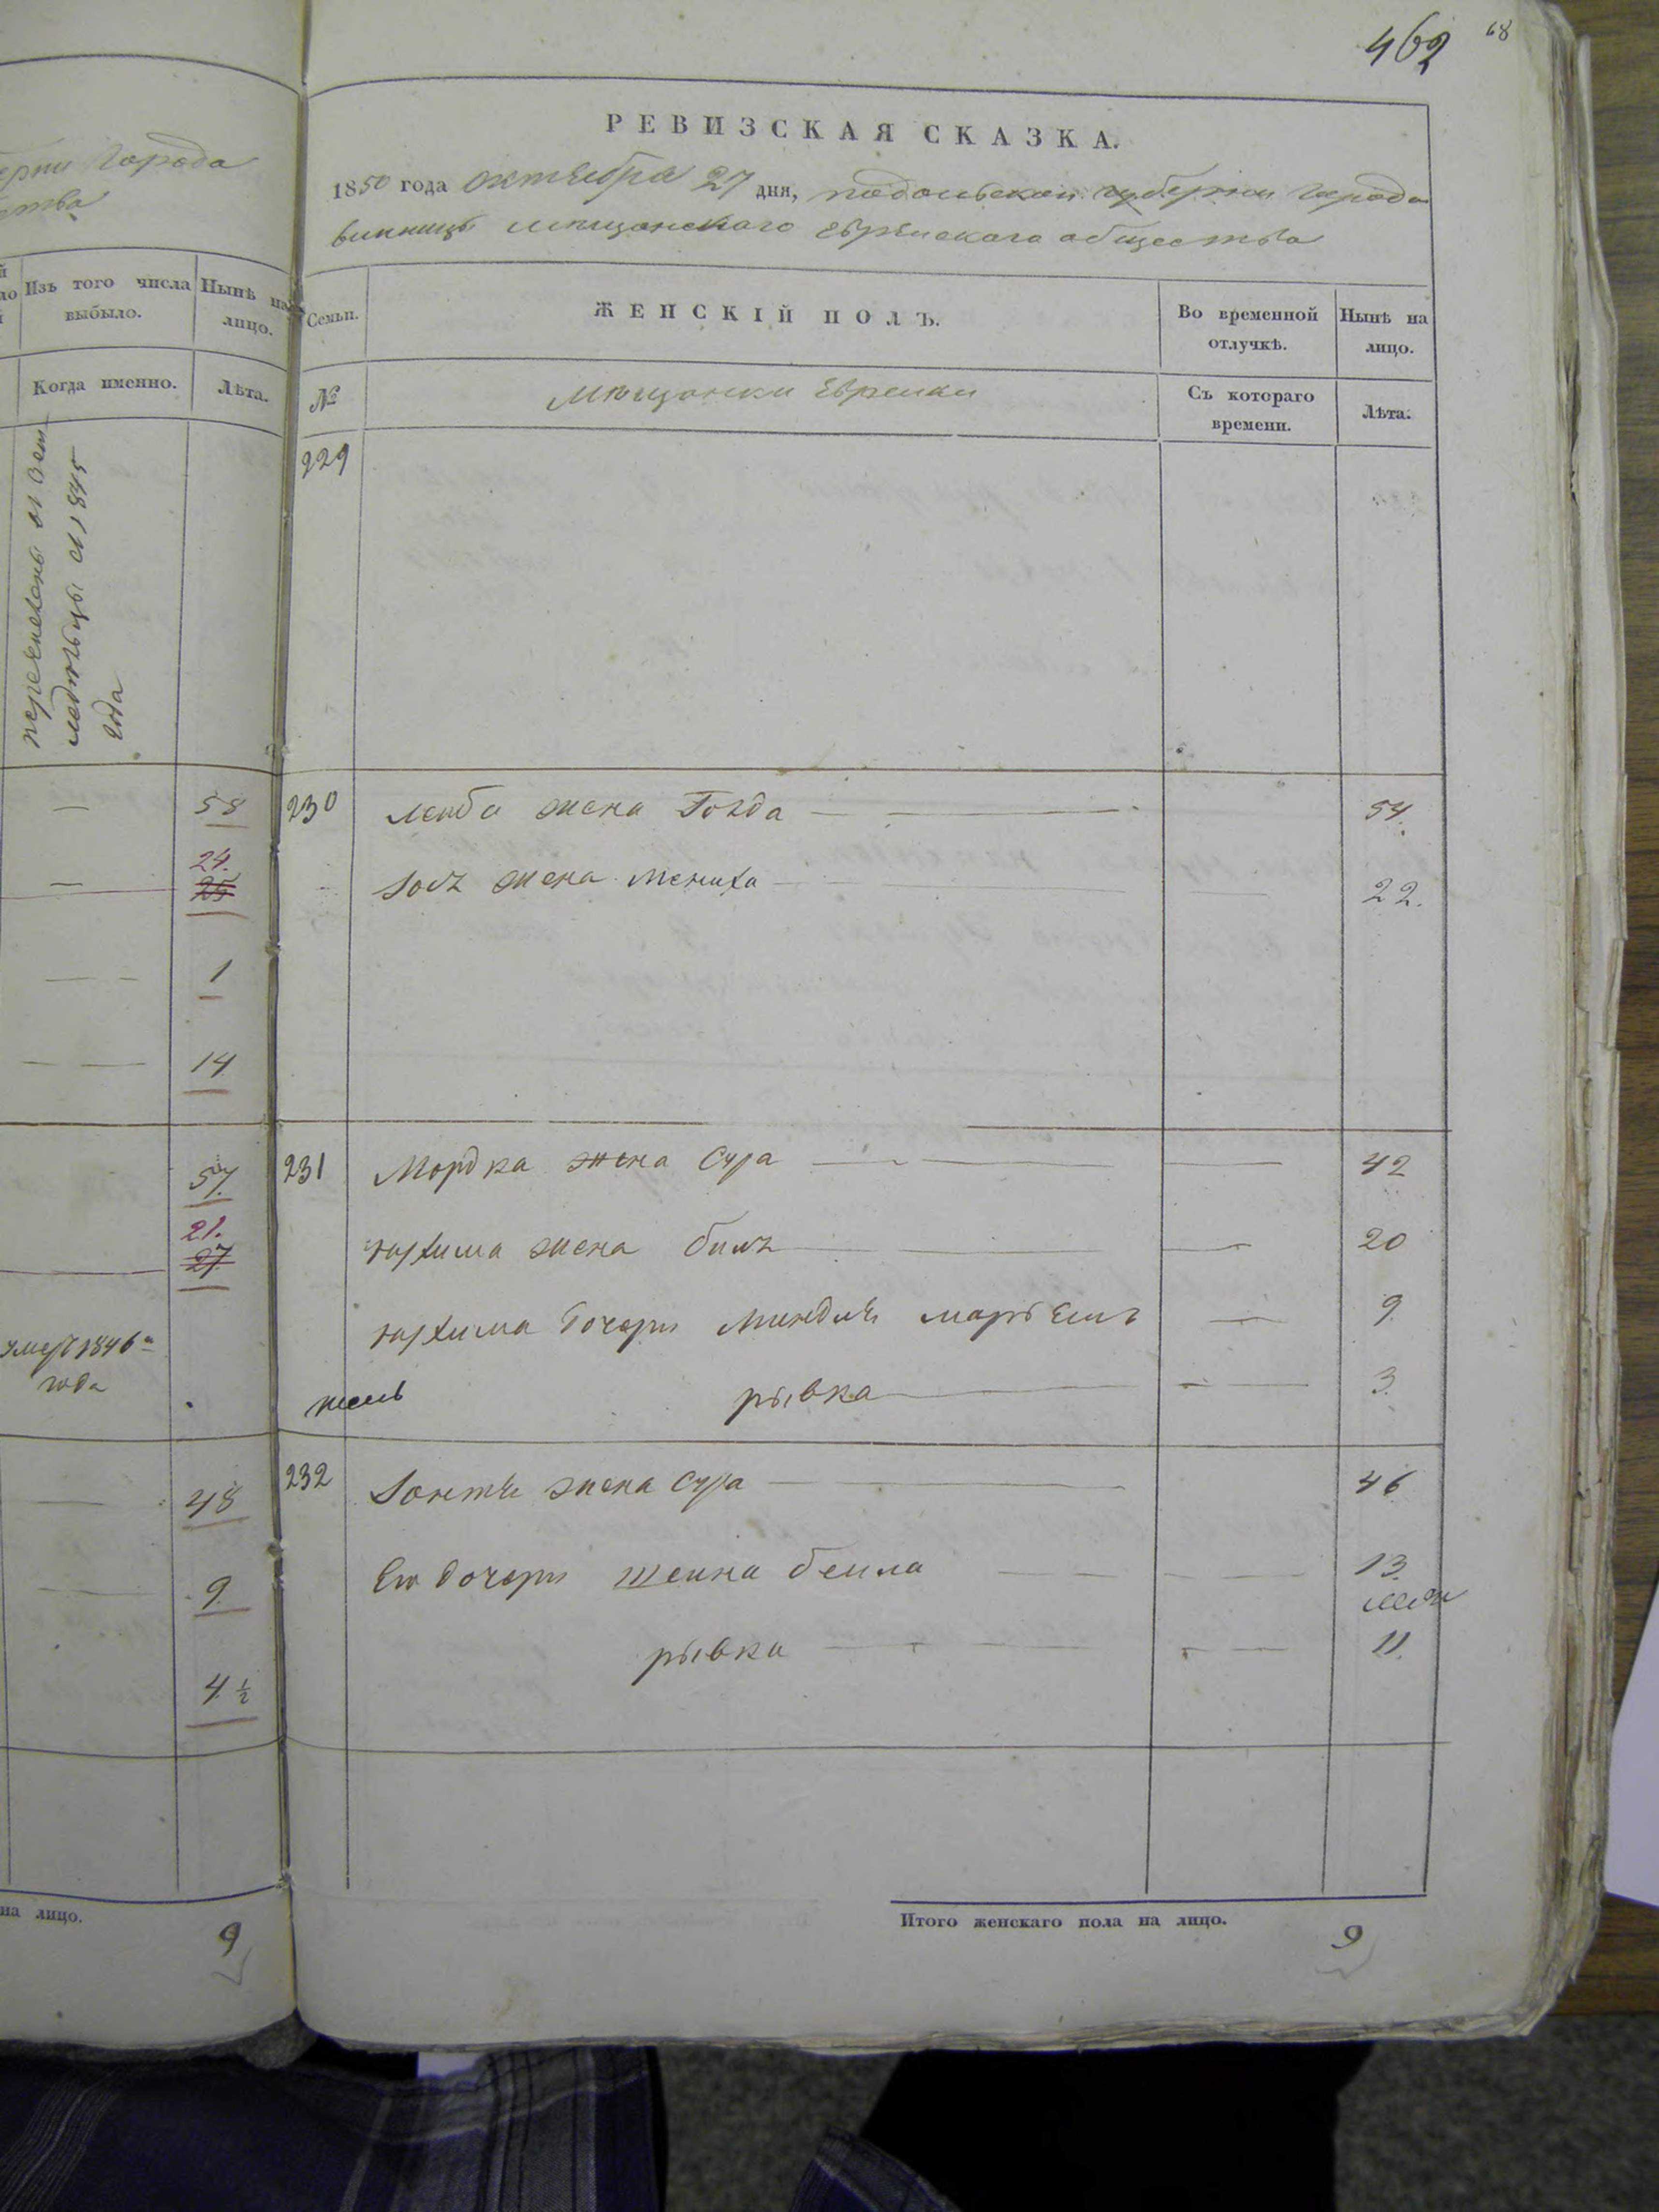 462 68
ерни Города
ства
Изъ того числа выбыло.
Нынѣ на лицо.
Когда именно.
Лѣта.
1845
года
—
58
24.
25
1
14
57.
21.
27
умеръ 1846 года
48
9.
4 ½
на лицо.
9
РЕВИЗСКАЯ СКАЗКА.
1850 года октября 27 дня, подольской губернии города
винницы мѣщанскаго еврейскаго общества
Семьи.
ЖЕНСКІЙ ПОЛЪ.
Во временной отлучкѣ.
Нынѣ на лицо.
№
мѣщанки Еврейки
Съ котораго времени.
Лѣта.
229
230 Лейба жена Голда — 54.
жена Мениха — 22.
231 Мордка жена Сура — 42
жена — 20
дочери Миндля — 9.
рывка — 3.
232 жена Сура — 46
Его дочери Шейна бейла — 13.
рывка — 11.
Итого женскаго пола на лицо.
9